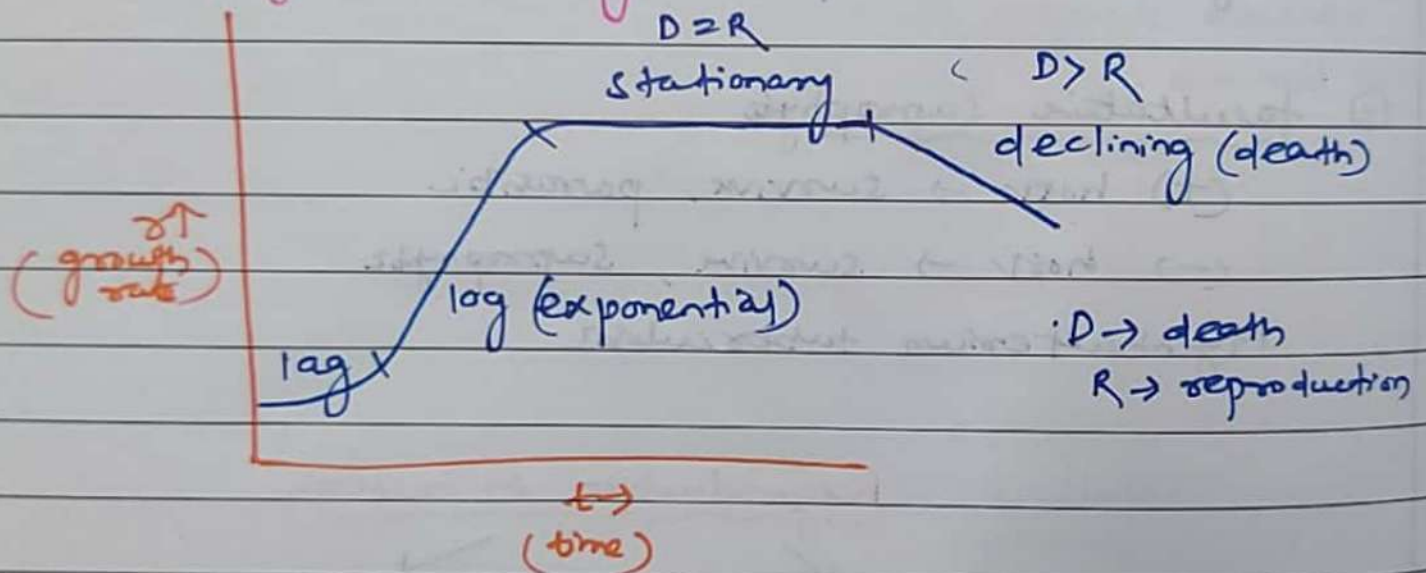 D = R
stationary
D > R
declining (death)
r↑
(growth rate)
log (exponential)
lag
D → death
R → reproduction
t →
(time)